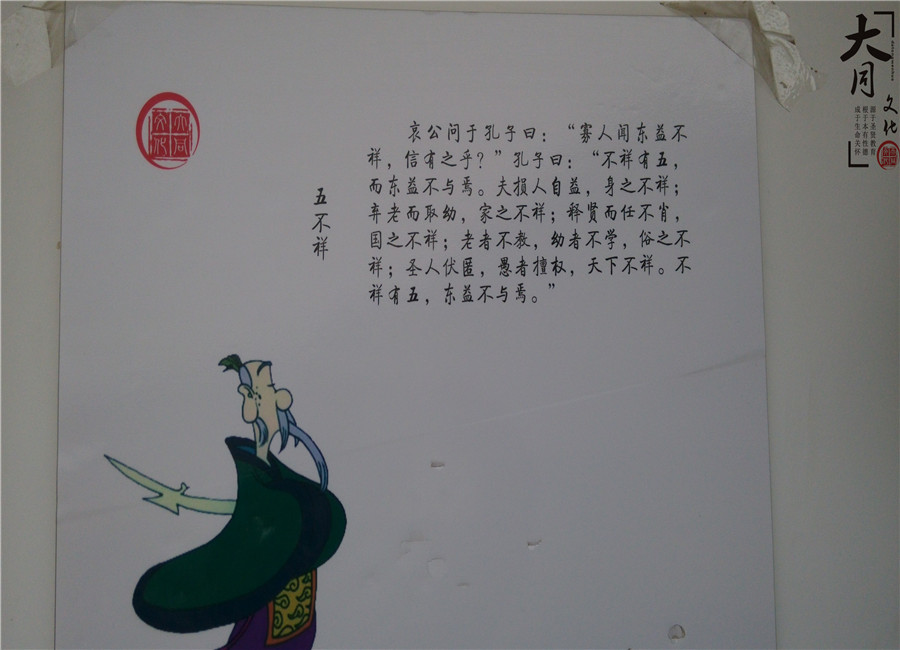 哀公问于孔子曰：“寡人闻东益不
祥，信有之乎？”孔子曰：“不祥有五，
而东益不与焉。夫损人自益，身之不祥；
弃老而取幼，家之不祥；释贤而任不肖，
国之不祥；老者不教，幼者不学，俗之不
祥；圣人伏匿，愚者擅权，天下不祥。不
祥有五，东益不与焉。”
五不祥
大同
文化
大同
文化
源于圣贤教育
根于本有性德
成于生命关怀